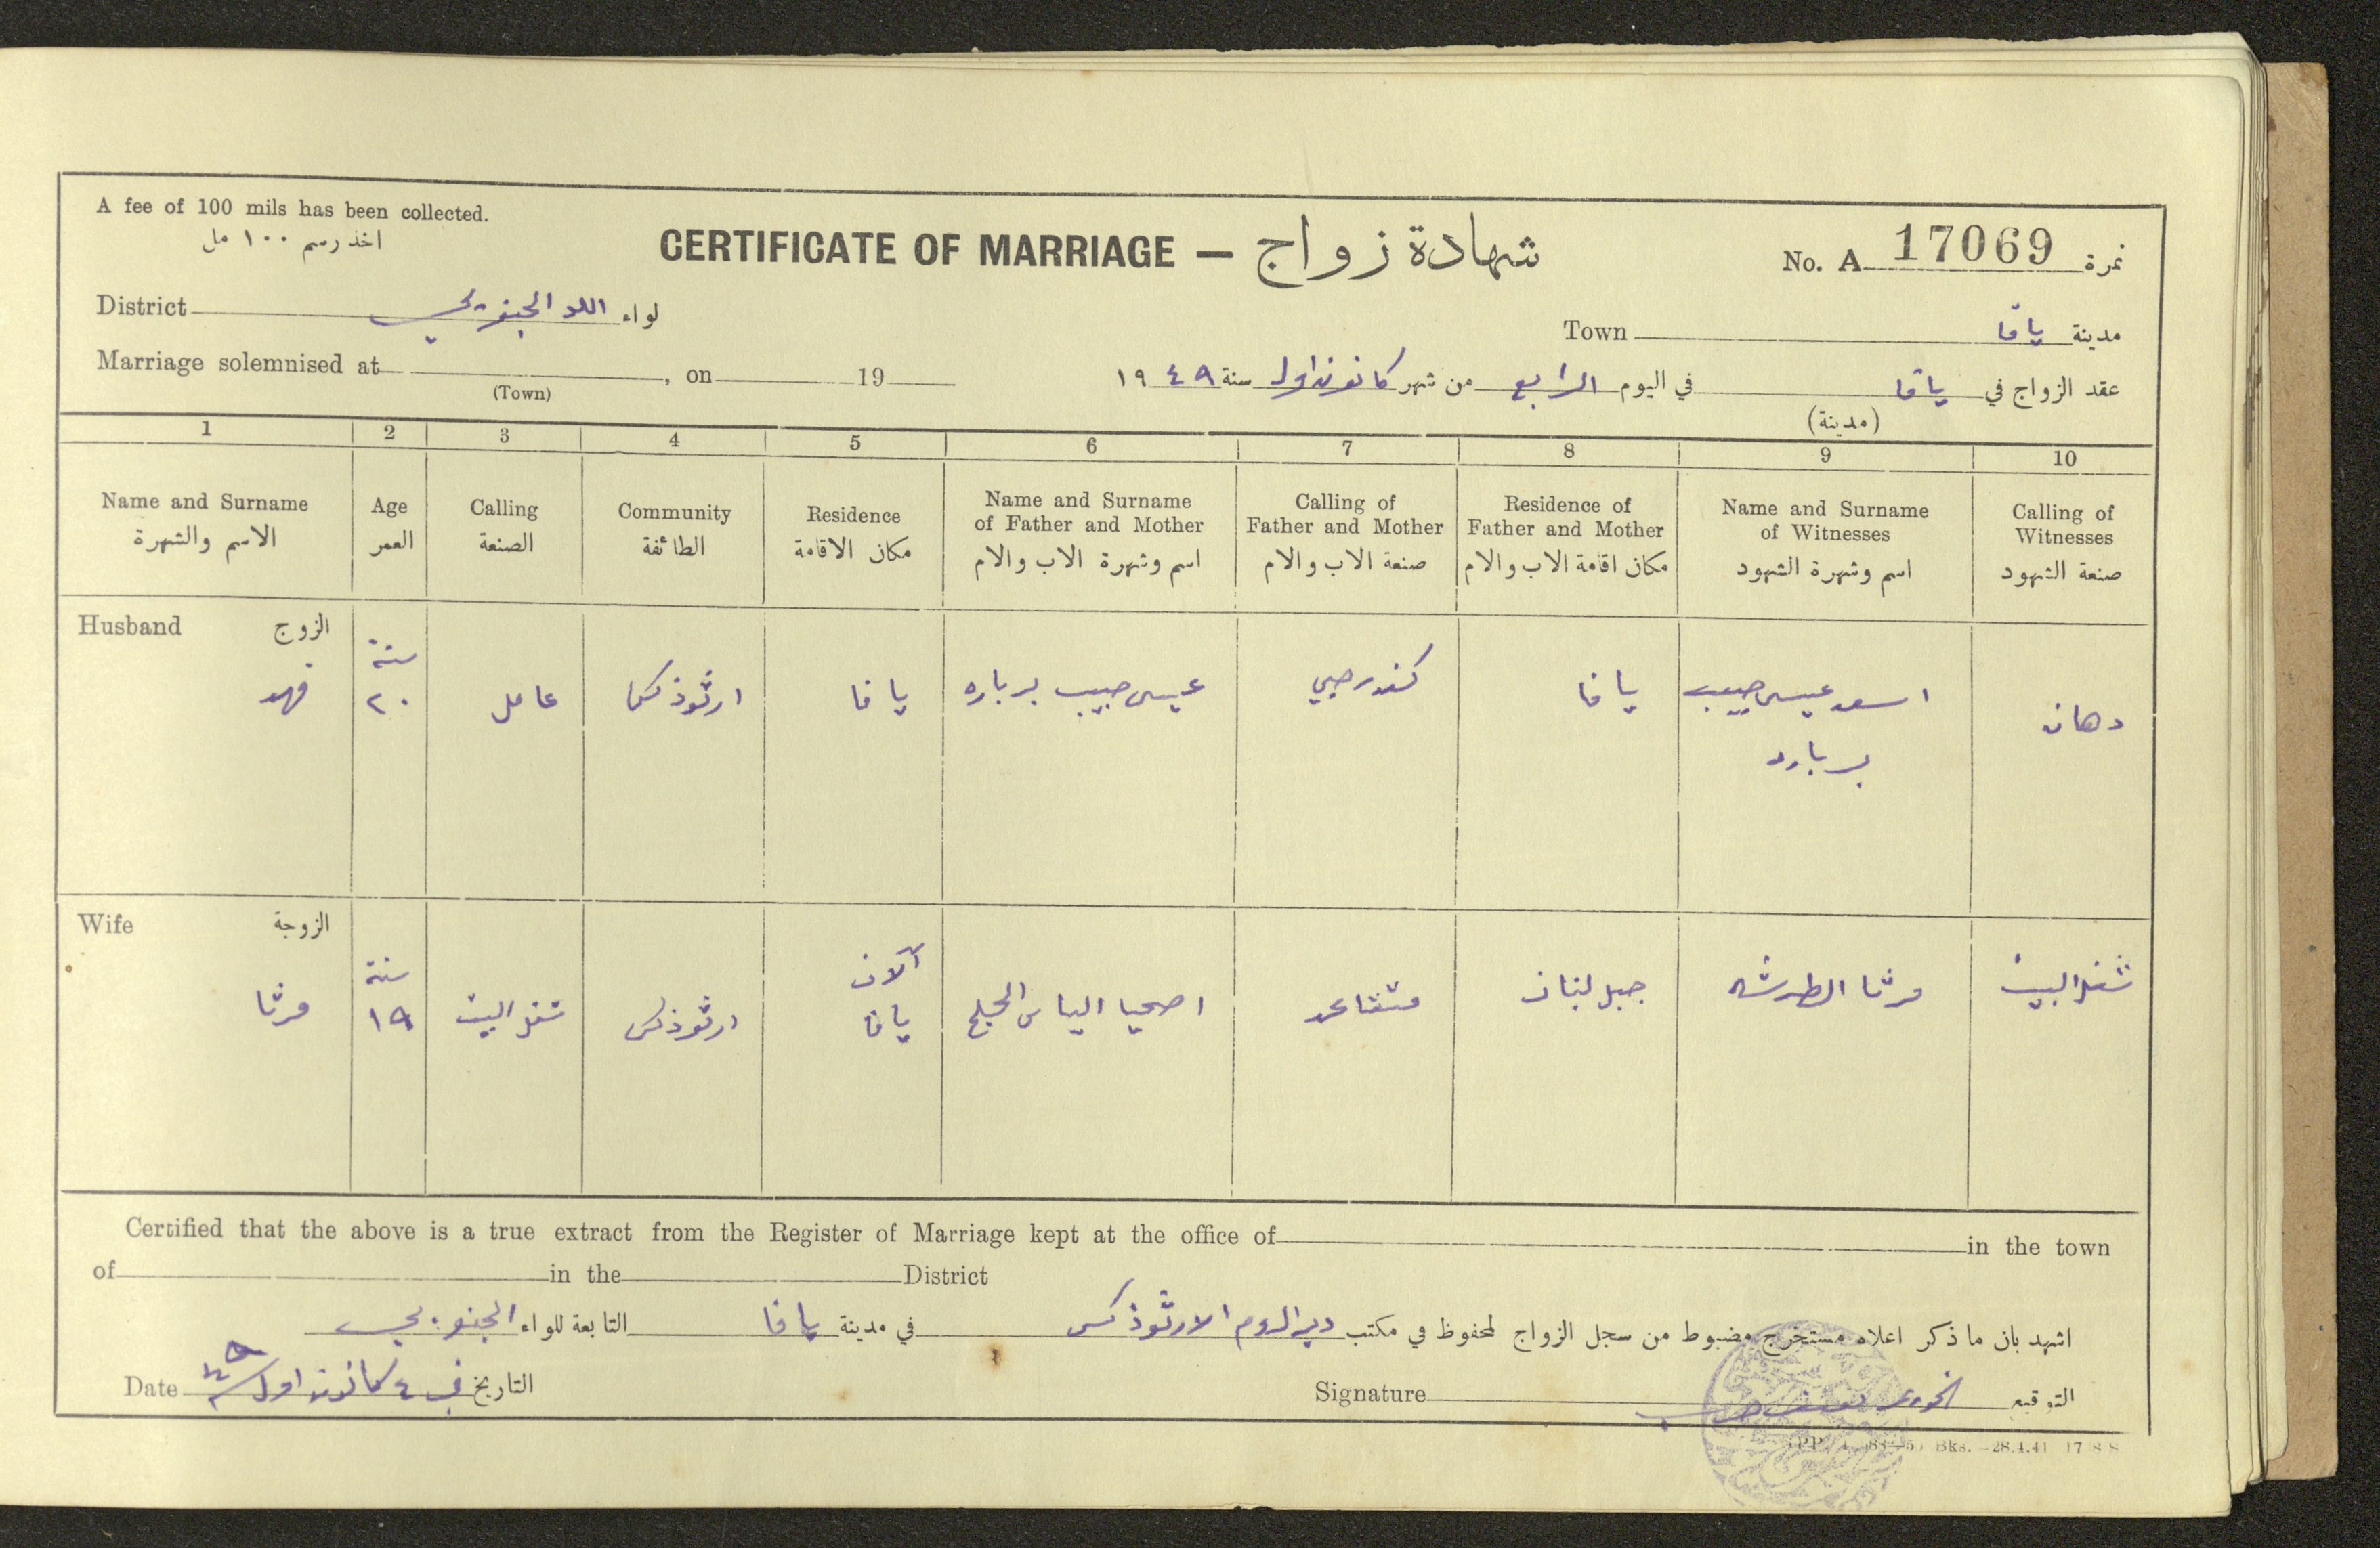 A fee of 100 mils has been collected.
اخذ رسم ١٠٠ مل
CERTIFICATE OF MARRIAGE — شهادة زواج
No. A 17069 نمرة
District لواء اللد الجنوبي
Town مدينة يافا
Marriage solemnised at , on 19
(Town)
عقد الزواج في يافا في اليوم الرابع من شهر كانون اول سنة ١٩٤٩
(مدينة)
1 2 3 4 5 6 7 8 9 10
Name and Surname
الاسم والشهرة
Age
العمر
Calling
الصنعة
Community
الطائفة
Residence
مكان الاقامة
Name and Surname
of Father and Mother
اسم وشهرة الاب والام
Calling of
Father and Mother
صنعة الاب والام
Residence of
Father and Mother
مكان اقامة الاب والام
Name and Surname
of Witnesses
اسم وشهرة الشهود
Calling of
Witnesses
صنعة الشهود
Husband الزوج
فهد
سنة
٢٠
عامل
ارثوذكس
يافا
عيسى حبيب برباره
كندرجي
يافا
اسعد عيسى حبيب
برباره
دهان
Wife الزوجة
مرثا
سنة
١٩
شغل البيت
ارثوذكس
الآن
يافا
الياس
متقاعد
جبل لبنان
مرثا الطرشه
شغل البيت
Certified that the above is a true extract from the Register of Marriage kept at the office of in the town
of in the District
اشهد بان ما ذكر اعلاه مستخرج مضبوط من سجل الزواج المحفوظ في مكتب دير الروم الارثوذكس في مدينة يافا التابعة للواء الجنوبي
Date التاريخ في ٤ كانون اول سنة ٤٩
Signature التوقيع الخوري
Bks. —28.4.41